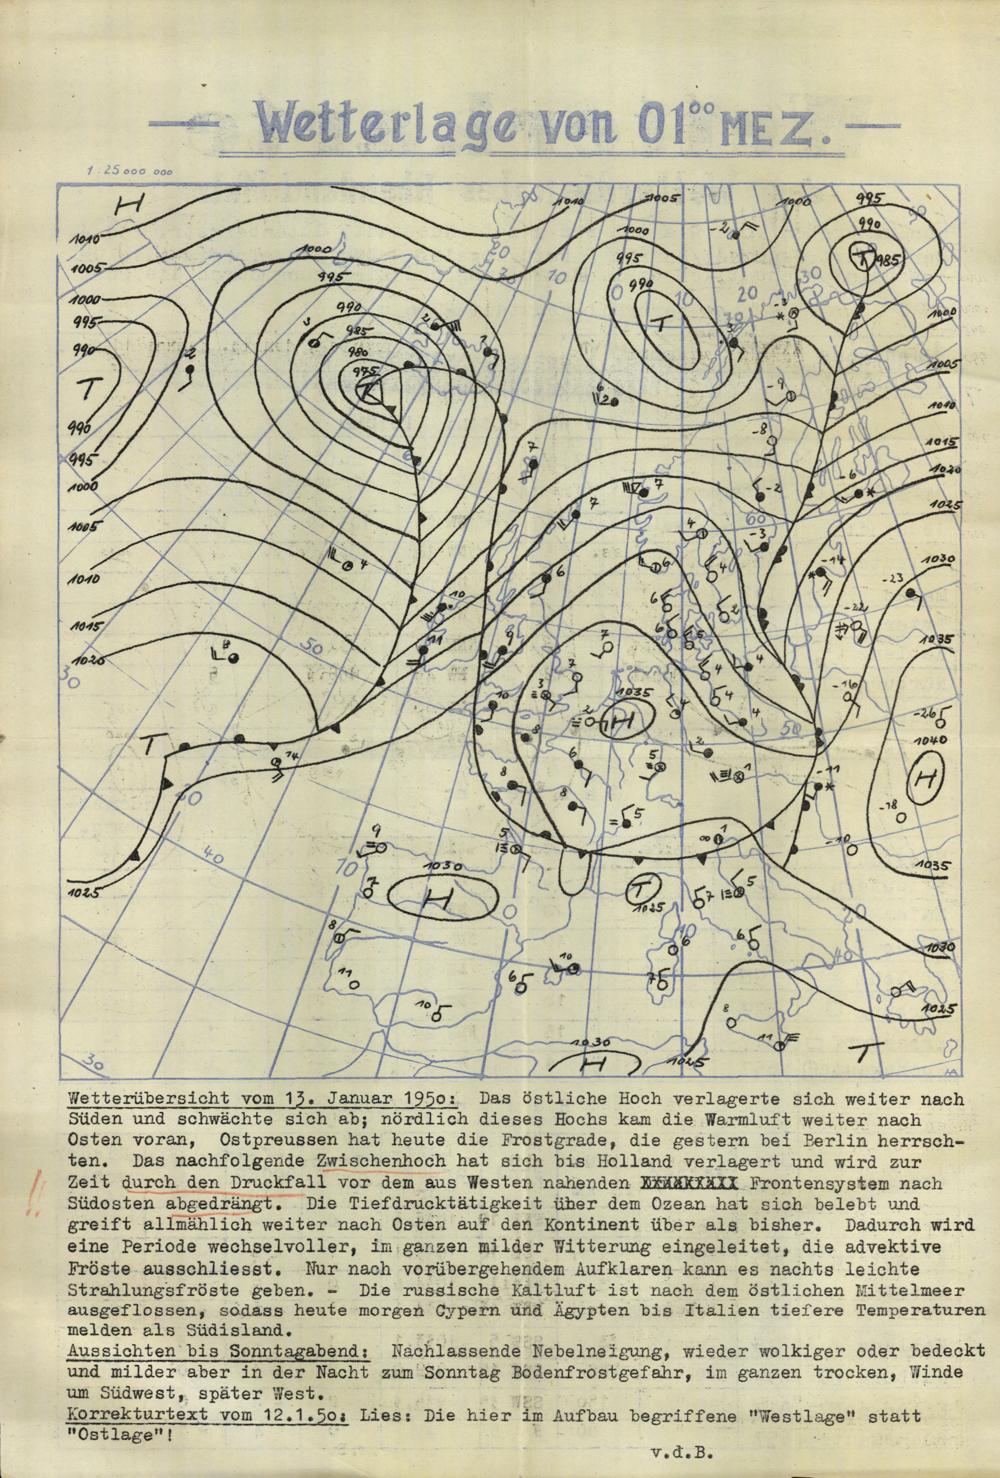 — Wetterlage von 01⁰⁰ MEZ. —
1:25 000 000
H
1010
1005
1000
995
990
T
990
995
1000
1005
1010
1015
1020
1000
995
990
985
980
975
1010
1005
1000
1000
995
990
T
995
990
T 985
1000
1005
1010
1015
1020
1025
1030
1035
1040
H
1035
1030
1025
T
1035
H
T
1025
1030
H
T
1025
1030
H
1025
Wetterübersicht vom 13. Januar 1950: Das östliche Hoch verlagerte sich weiter nach
Süden und schwächte sich ab; nördlich dieses Hochs kam die Warmluft weiter nach
Osten voran, Ostpreussen hat heute die Frostgrade, die gestern bei Berlin herrsch-
ten. Das nachfolgende Zwischenhoch hat sich bis Holland verlagert und wird zur
!! Zeit durch den Druckfall vor dem aus Westen nahenden Frontensystem nach
Südosten abgedrängt. Die Tiefdrucktätigkeit über dem Ozean hat sich belebt und
greift allmählich weiter nach Osten auf den Kontinent über als bisher. Dadurch wird
eine Periode wechselvoller, im ganzen milder Witterung eingeleitet, die advektive
Fröste ausschliesst. Nur nach vorübergehendem Aufklaren kann es nachts leichte
Strahlungsfröste geben. - Die russische Kaltluft ist nach dem östlichen Mittelmeer
ausgeflossen, sodass heute morgen Cypern und Ägypten bis Italien tiefere Temperaturen
melden als Südisland.
Aussichten bis Sonntagabend: Nachlassende Nebelneigung, wieder wolkiger oder bedeckt
und milder aber in der Nacht zum Sonntag Bodenfrostgefahr, im ganzen trocken, Winde
um Südwest, später West.
Korrekturtext vom 12.1.50: Lies: Die hier im Aufbau begriffene "Westlage" statt
"Ostlage"!
v.d.B.